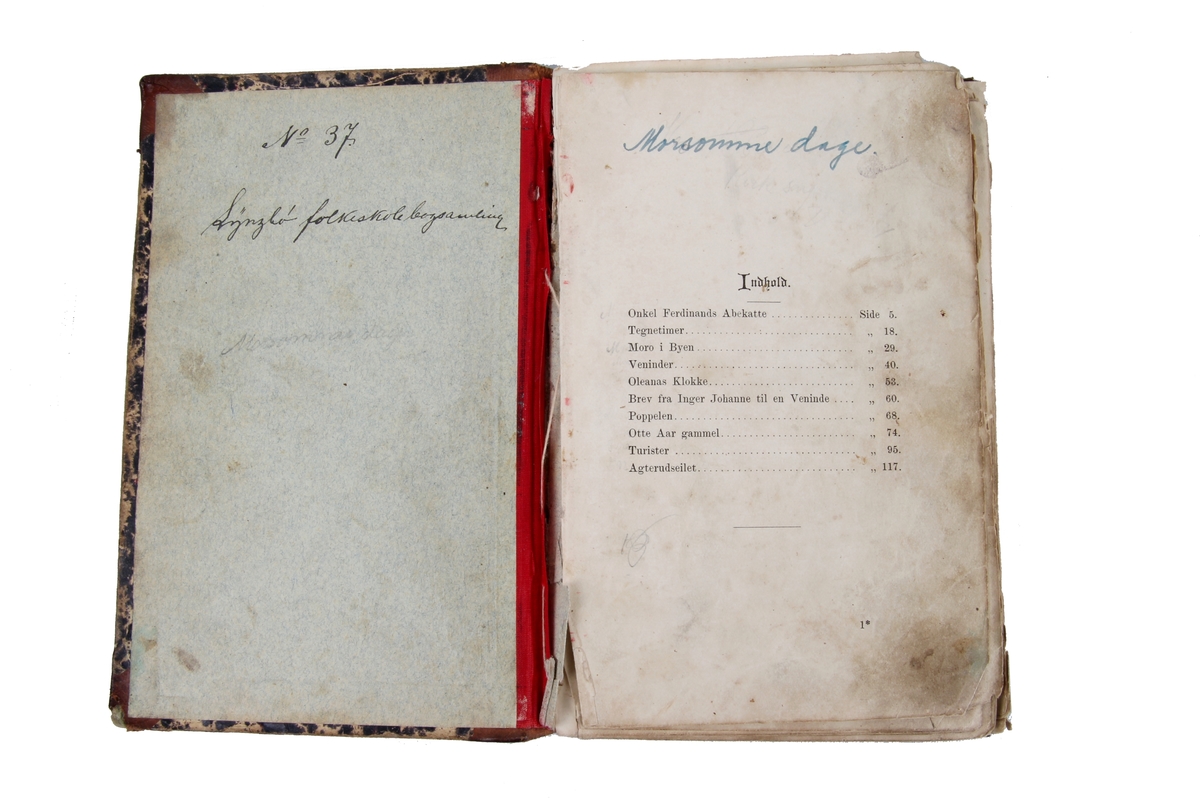 No 37.
folkeskolebogsamling
Morsomme dage.
Indhold.
Onkel Ferdinands Abekatte .............. Side 5.
Tegnetimer............................ „ 18.
Moro i Byen .......................... „ 29.
Veninder.............................. „ 40.
Oleanas Klokke........................ „ 53.
Brev fra Inger Johanne til en Veninde .... „ 60.
Poppelen.............................. „ 68.
Otte Aar gammel....................... „ 74.
Turister .............................. „ 95.
Agterudseilet.......................... „ 117.
1*